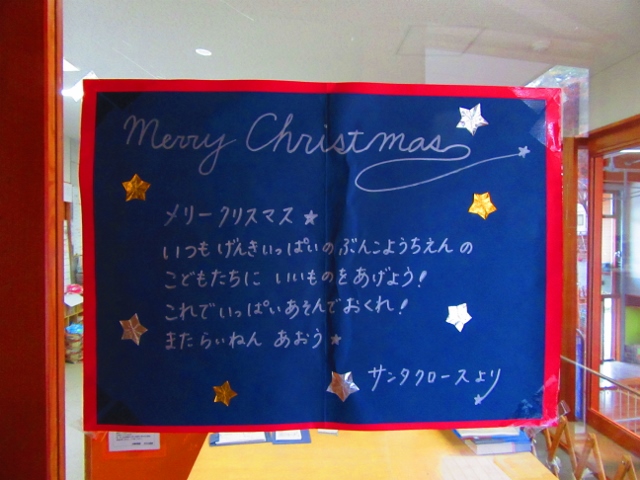 Merry Christmas
メリークリスマス
いつもげんきいっぱいのぶんこようちえんの
こどもたちに いいものをあげよう!
これでいっぱいあそんでおくれ!
またらいねん あおう
サンタクロースより